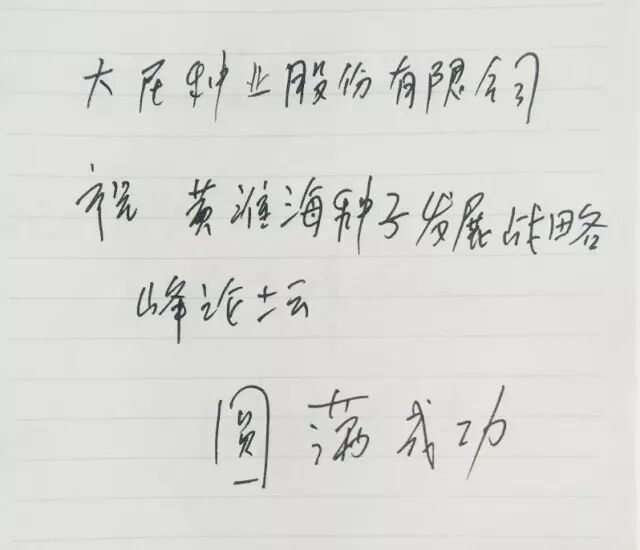 大民种业股份有限公司
祝 黄淮海种子发展战略
峰论坛
圆满成功